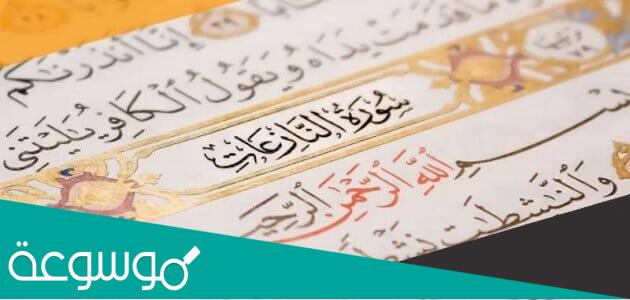 إِنَّا أَنذَرْنَاكُمْ
مَا قَدَّمَتْ يَدَاهُ وَيَقُولُ الْكَافِرُ يَٰلَيْتَنِي
سُورَةُ النَّازِعَاتِ
ـسْمِ اللَّهِ الرَّحْمَٰنِ الرَّحِيـ
وَالنَّٰشِطَٰتِ نَشْطًا
موسوعة